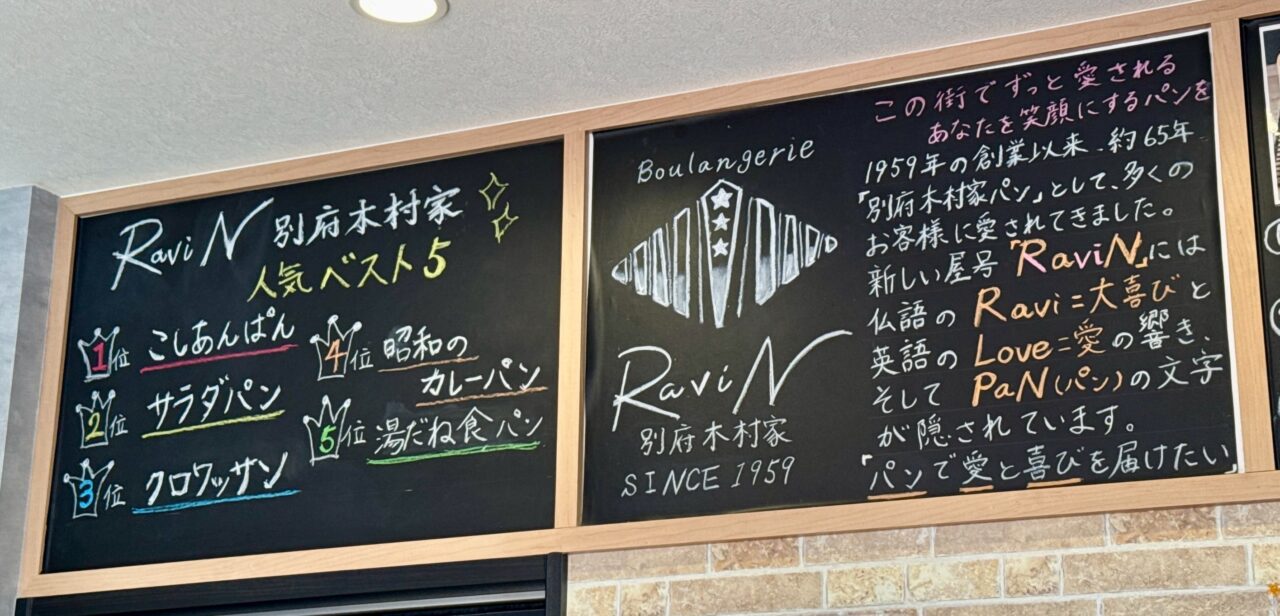 RaviN 別府木村家
人気ベスト5
1位 こしあんぱん
2位 サラダパン
3位 クロワッサン
4位 昭和の
カレーパン
5位 湯だね食パン
Boulangerie
RaviN
別府木村家
SINCE 1959
この街でずっと愛される
あなたを笑顔にするパンを
1959年の創業以来、約65年
「別府木村家パン」として、多くの
お客様に愛されてきました。
新しい屋号「RaviN」には
仏語の Ravi=大喜びと
英語の Love=愛の響き、
そして PaN(パン)の文字
が隠されています。
「パンで愛と喜びを届けたい」